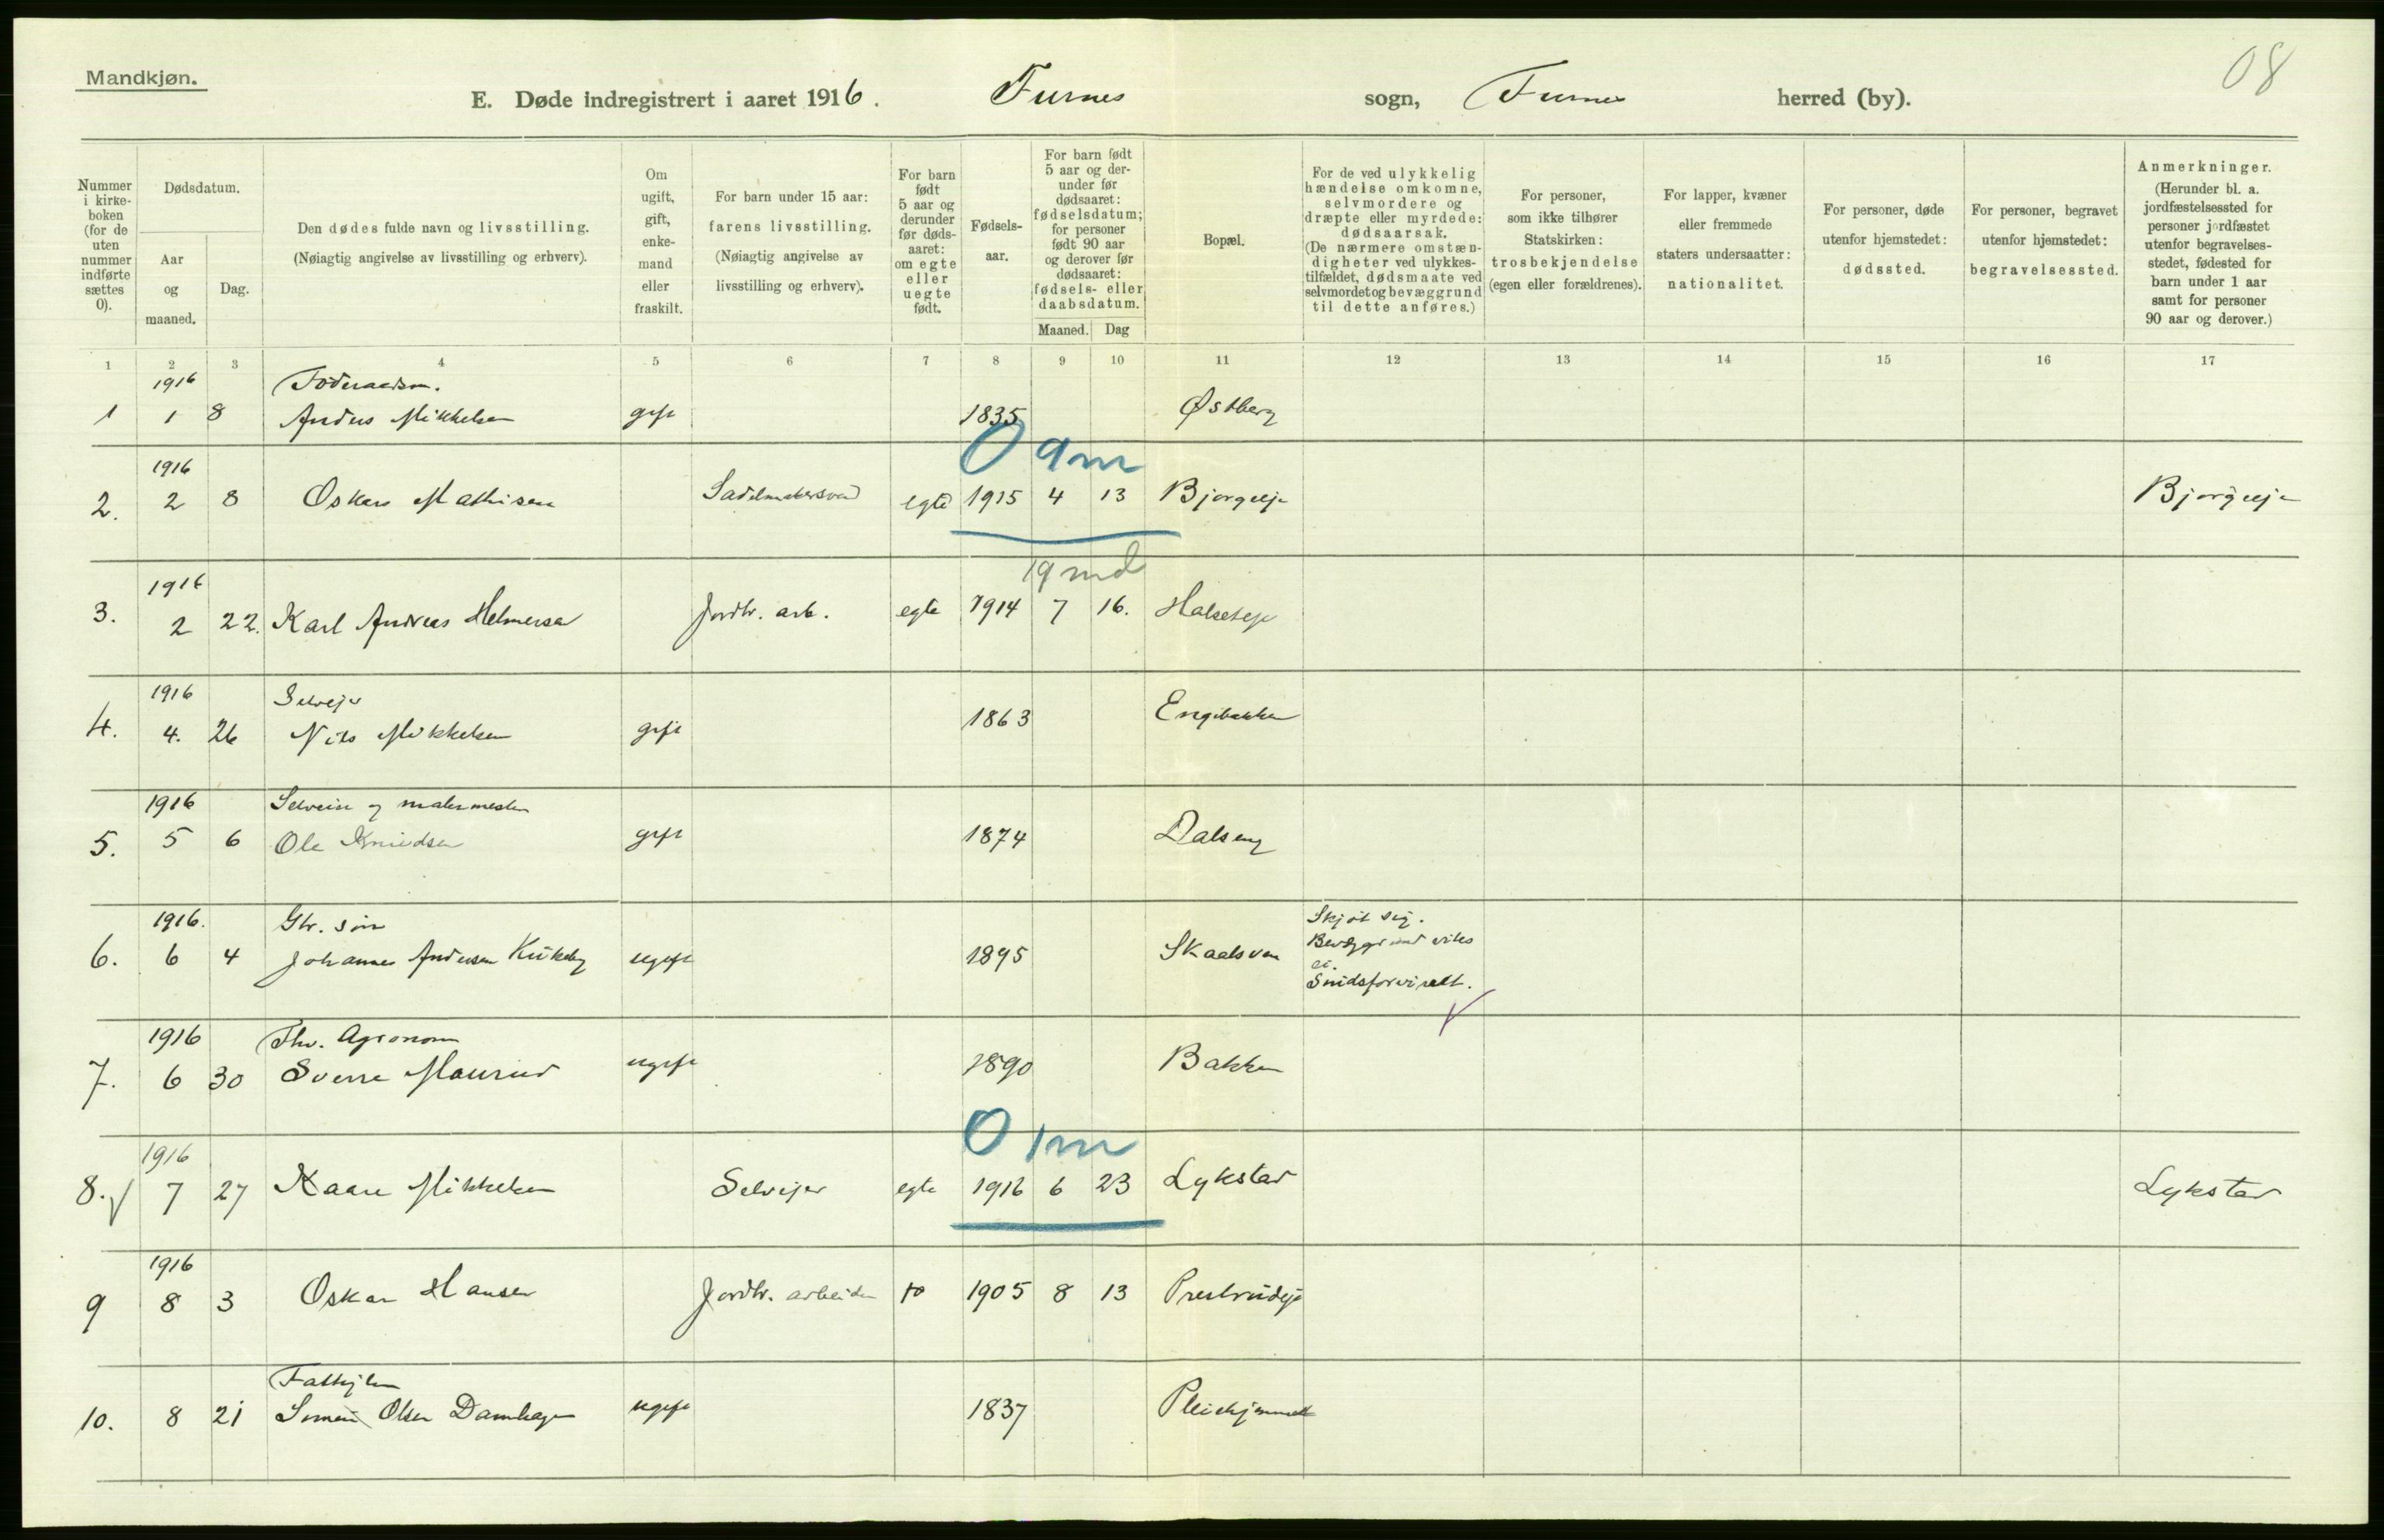 Mandkjøn.
08
E. Døde indregistrert i aaret 1916. Furnes sogn, Furnes herred (by).
Nummer i kirke-boken (for de uten nummer indførte sættes 0).
Dødsdatum.
Aar og maaned.
Dag.
Den dødes fulde navn og livsstilling.
(Nøiagtig angivelse av livsstilling og erhverv).
Om ugift, gift, enke-mand eller fraskilt.
For barn under 15 aar: farens livsstilling.
(Nøiagtig angivelse av livsstilling og erhverv).
For barn født 5 aar og derunder før døds-aaret: om egte eller uegte født.
Fødsels-aar.
For barn født 5 aar og der-under før dødsaaret: fødselsdatum; for personer født 90 aar og derover før dødsaaret: fødsels- eller daabsdatum.
Maaned. Dag
Bopæl.
For de ved ulykkelig hændelse omkomne, selvmordere og dræpte eller myrdede: dødsaarsak.
(De nærmere omstæn-digheter ved ulykkes-tilfældet, dødsmaate ved selvmordet og bevæggrund til dette anføres.)
For personer, som ikke tilhører Statskirken: trosbekjendelse (egen eller forældrenes).
For lapper, kvæner eller fremmede staters undersaatter: nationalitet.
For personer, døde utenfor hjemstedet: dødssted.
For personer, begravet utenfor hjemstedet: begravelsessted.
Anmerkninger.
(Herunder bl. a. jordfæstelsessted for personer jordfæstet utenfor begravelses-stedet, fødested for barn under 1 aar samt for personer 90 aar og derover.)
1 2 3 4 5 6 7 8 9 10 11 12 13 14 15 16 17
1916 Føderaadsm.
1 1 8 Anders Mikkelsen gift 1835 Østberg
0 9m
1916
2. 2 8 Oskar Mathisen Sadelmakersvend egte 1915 4 13 Bjørgeeje Bjørgeeje
19 md
1916
3. 2 22. Karl Andreas Helmersen Jordbr. arb. egte 1914 7 16. Halseteje
1916 Selvejer
4. 4. 26 Nils Mikkelsen gift 1863 Engebakken
1916 Selveier og malermester
5. 5 6 Ole Knudsen gift 1874 Dalseng
1916. Gbr. søn Skjøt sig.
6. 6 4 Johannes Andersen ugift 1895 Skaalsven Bevæggrund vites
ei.
Sindsforvirret.
1916 Fhv. Agronom
7. 6 30 Sverre ugift 1890 Bakken
0 1m
1916
8. 7 27 Kaare Mikkelsen Selvejer egte 1916 6 23 Lykstad Lykstad
1916
9 8 3 Oskar Hansen Jordbr. arbeider to 1905 8 13 Prestrudeje
Fattiglem
10. 8 21 Simen Olsen Damhagen ugift 1837 Pleiehjemmet